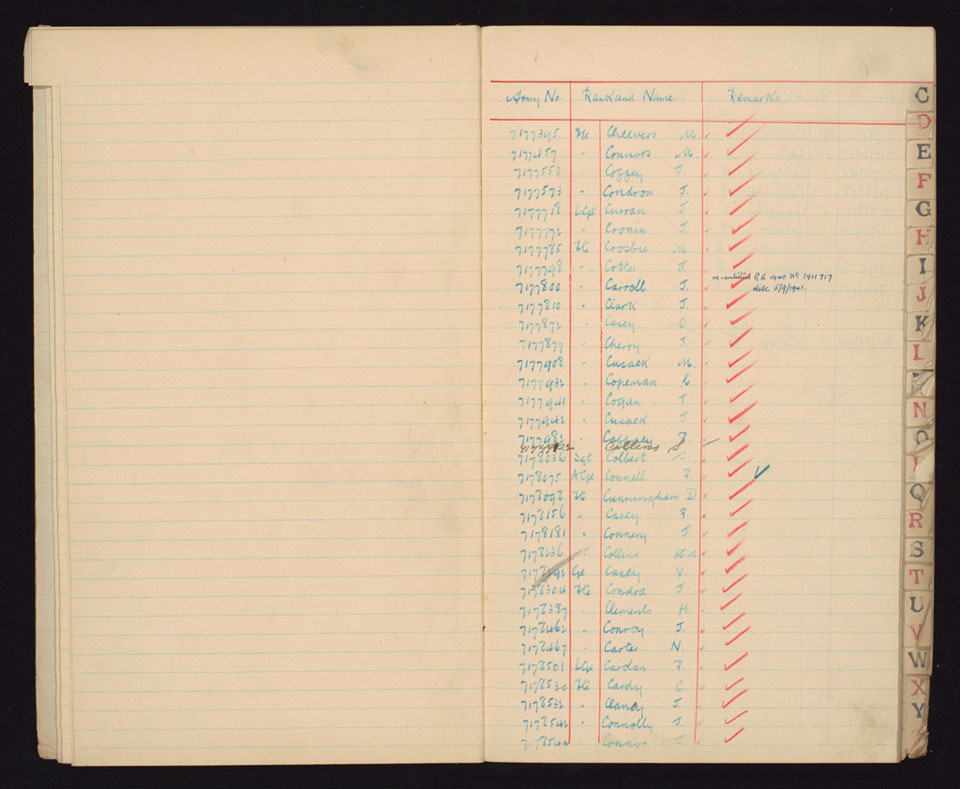 Army No. Rank and Name Remarks
7177395 Pte Cheevers M.
Connors M.
7177553 " Coffey J.
7177573 " Condron J.
7177718 L/Cpl Curran J.
7177772 " Cronin J.
7177785 Pte Crosbie M.
7177798 " J.
re-enlisted R.E. No 1911717
7177800 " Carroll J.
date 5/9/1940.
7177810 " Clark J.
7177872 " Casey
7177877 " Cherry J.
7177908 " Cusack M.
7177932 " Copeman C
7177941 " Cogan T.
7177942 " Cusack J.
Collins S
7178036 Sgt Colbert
7178075 Connell F.
7178098 Pte Cunningham D
7178156 " Casey F.
7178181 " Connery J.
7178236 " Collins
Cpl Casey V.
7178304 Pte Condra J.
7178387 " Clements H.
7178462 " Conroy J.
7178467 " Carter N.
7178501 L/Cpl Carolan F.
Pte Cardy C.
7178532 " Clancy J.
7178542 " Connolly J.
Connor J.
C
D
E
F
G
H
I
J
K
L
N
O
Q
R
S
T
U
V
W
X
Y